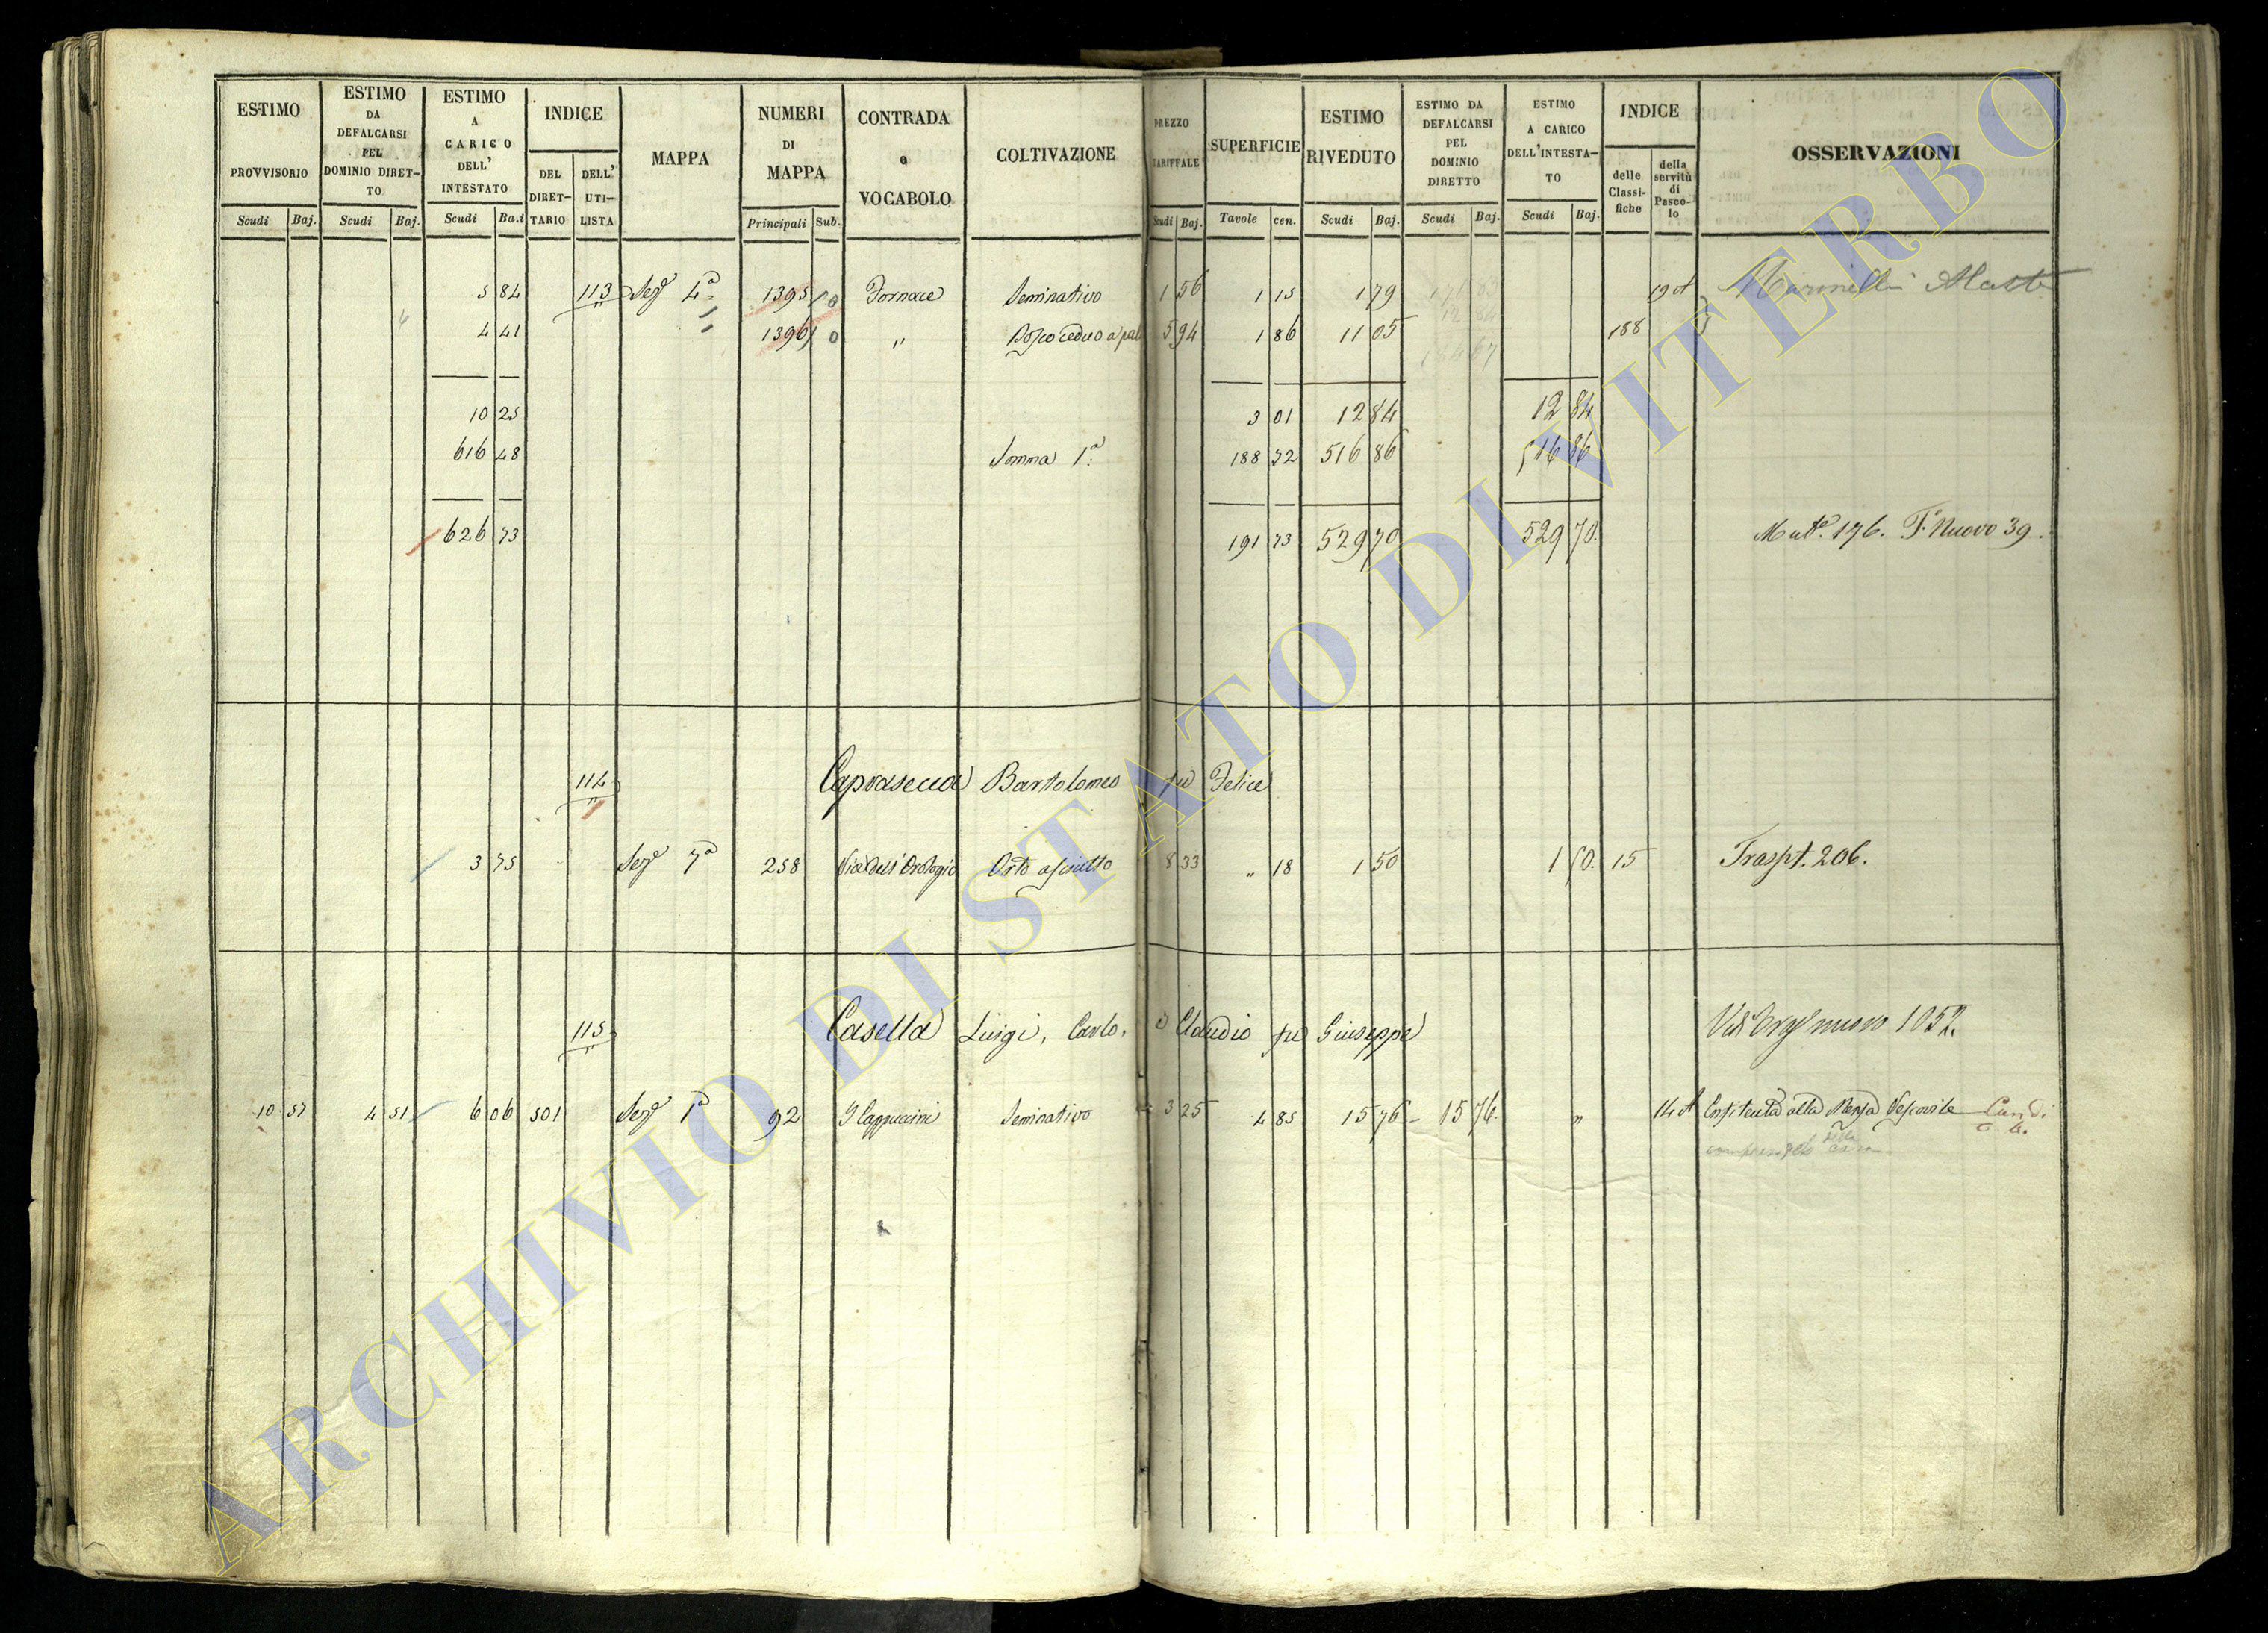 ESTIMO PROVVISORIO Scudi Baj.
ESTIMO DA DEFALCARSI PEL DOMINIO DIRETTO Scudi Baj.
ESTIMO A CARICO DELL' INTESTATO Scudi Ba.i
INDICE DEL DIRETTARIO DELL' UTILISTA
MAPPA
NUMERI DI MAPPA Principali Sub.
CONTRADA e VOCABOLO
COLTIVAZIONE
PREZZO TARIFFALE Scudi Baj.
SUPERFICIE Tavole cen.
ESTIMO RIVEDUTO Scudi Baj.
ESTIMO DA DEFALCARSI PEL DOMINIO DIRETTO Scudi Baj.
ESTIMO A CARICO DELL'INTESTATO Scudi Baj.
INDICE delle Classifiche della servitù di Pascolo
OSSERVAZIONI
5 84 113 Sez.e 4.a 1395 Fornace Seminativo 1 56 1 15 1 79 19 A
4 41 " 1396 " Bosco ceduo a pal 5 94 1 86 11 05 188
10 25 3 01 12 84 12 84
616 48 Somma 1.a 188 72 516 86 516 86
626 73 191 73 529 70 529 70. Mut.e 176. T. Nuovo 39.
114 Caprasecca Bartolomeo fu Felice
3 75 Sez.e 7.a 258 Via dell' Orologio Orto asciutto 8 33 " 18 1 50 1 50. 15 Traspt. 206.
115 Casella Luigi, Carlo, e Claudio fu Giuseppe nuovo 1052
10 57 4 51 6 06 501 Sez.e 1.a 92 I Cappuccini Seminativo 3 25 4 85 15 76 15 76. " 14 A Enfiteuta alla Mensa Vescovile
ARCHIVIO DI STATO DI VITERBO